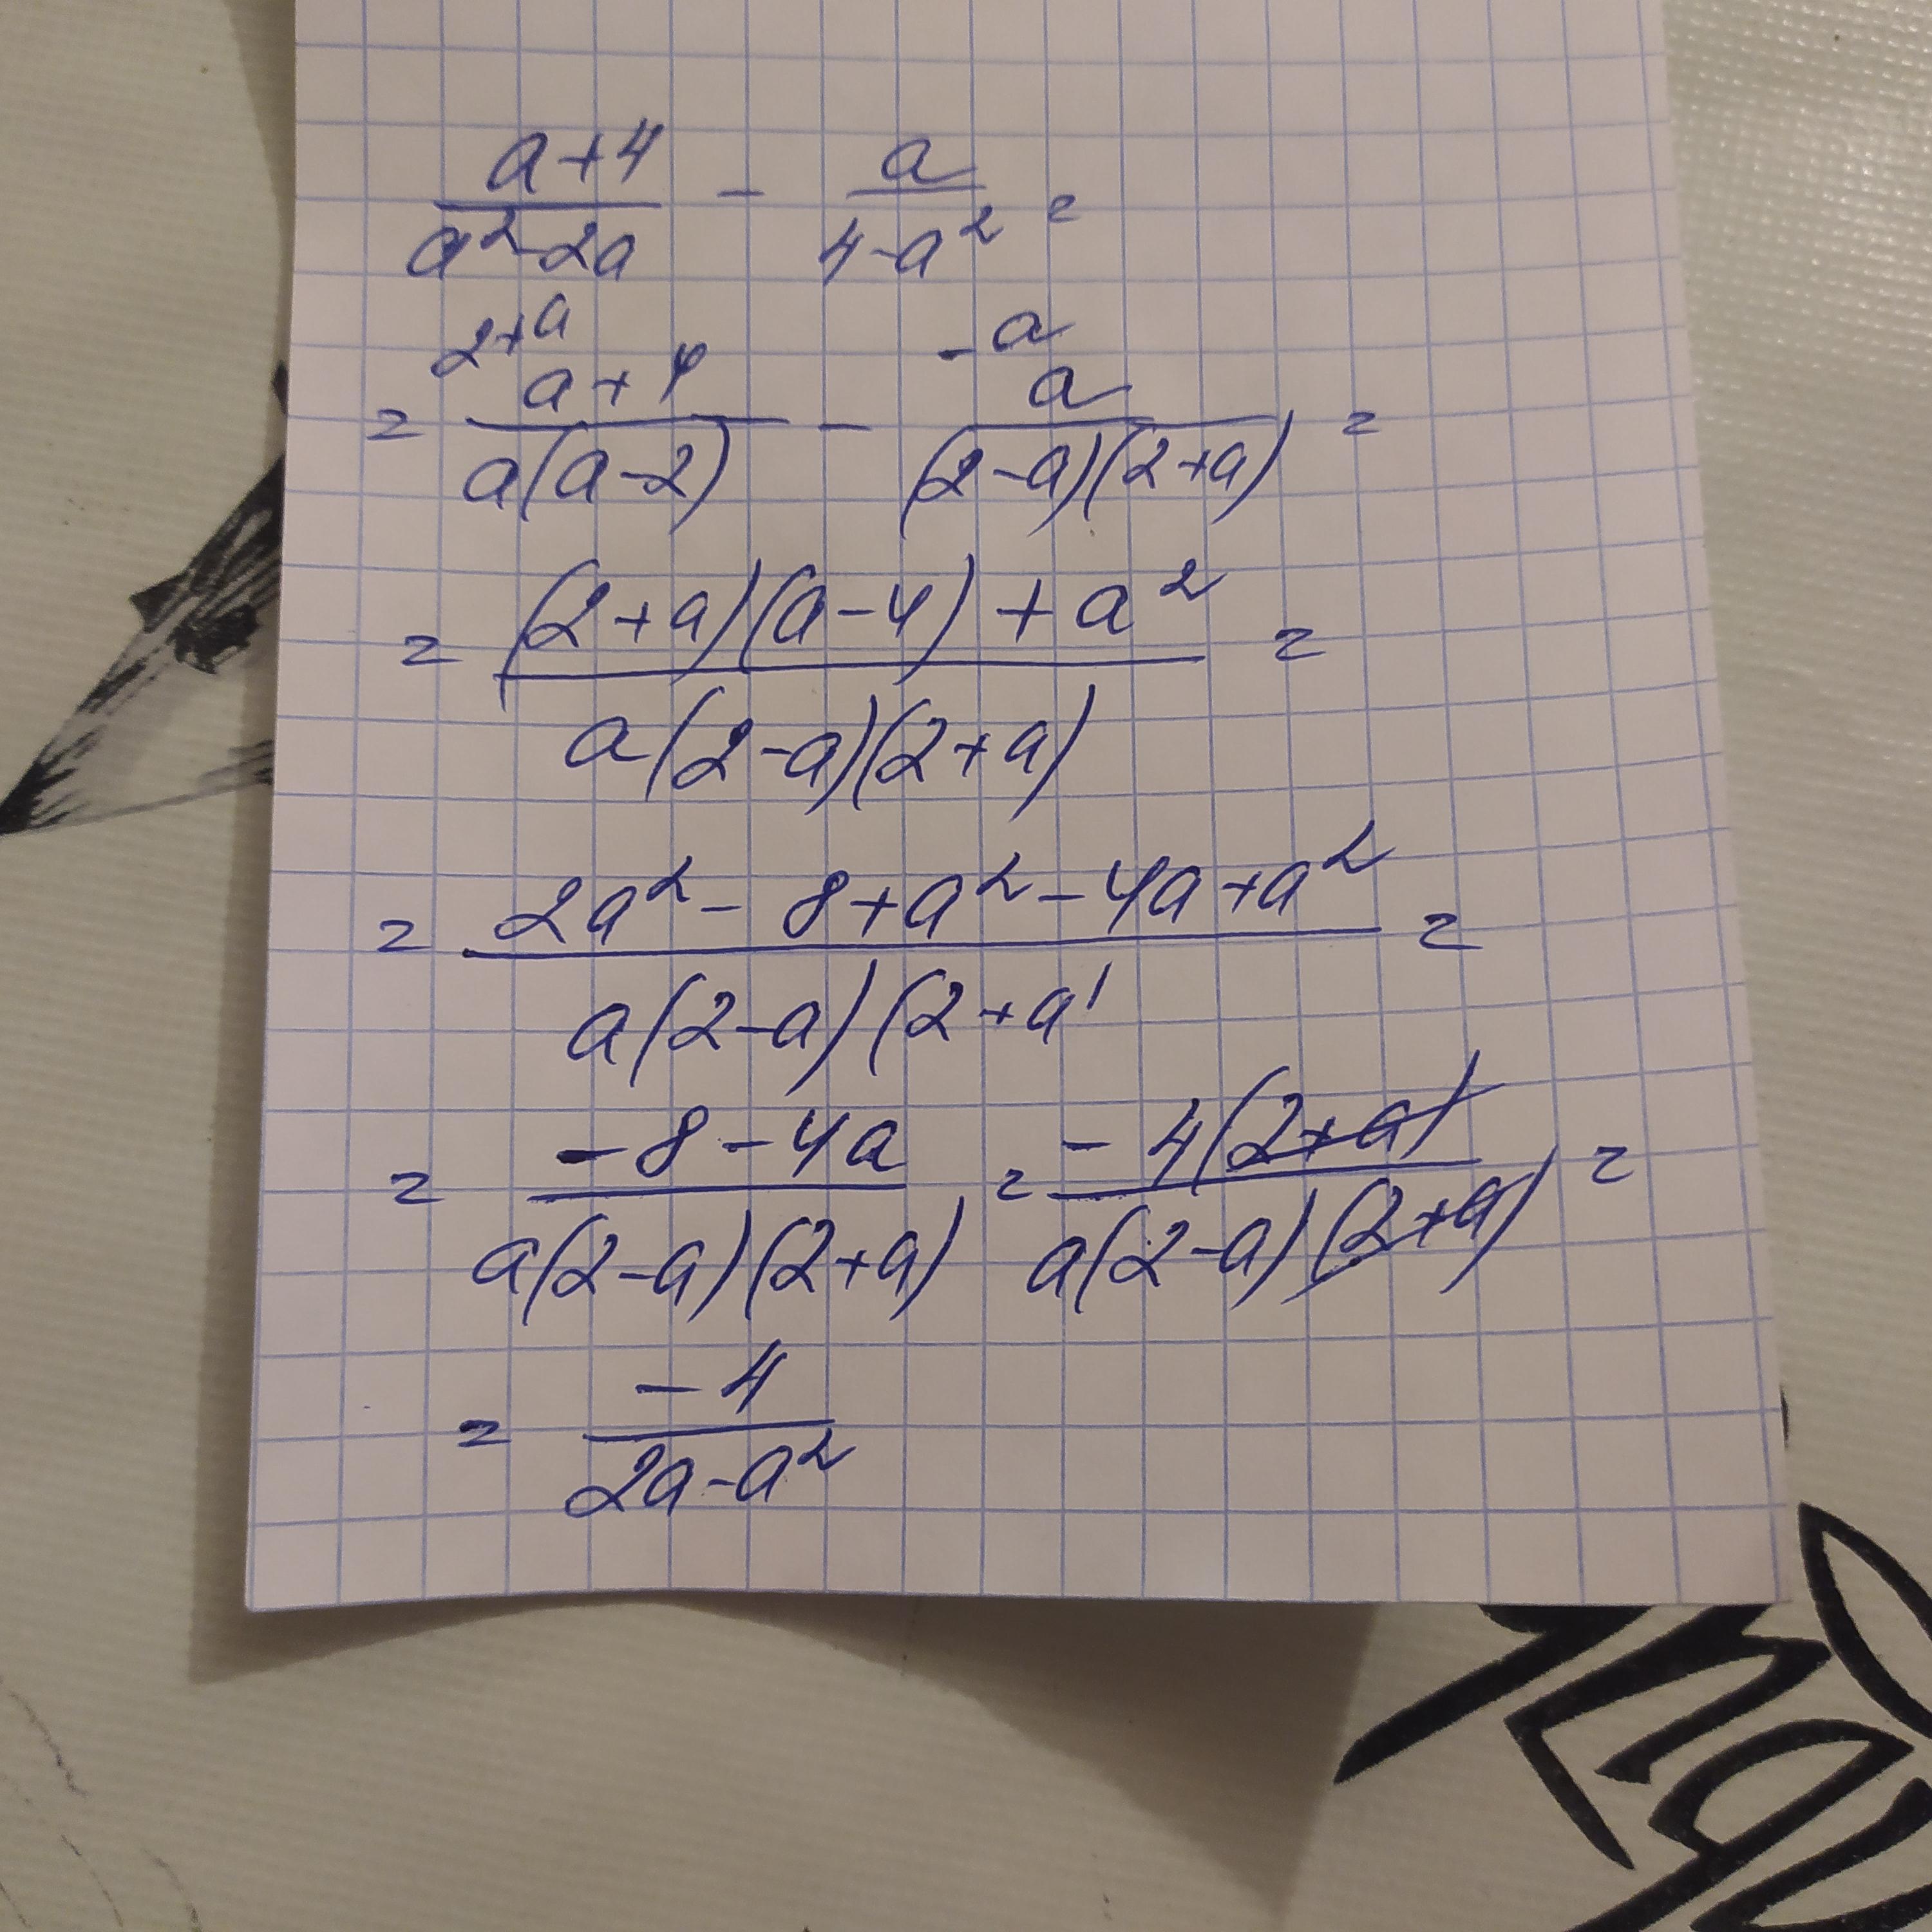 (a+4)/(a²-2a) - a/(4-a²) =
2+a -a
= (a+4)/(a(a-2)) - a/((2-a)(2+a)) =
= ((2+a)(a-4)+a²)/(a(2-a)(2+a)) =
= (2a²-8+a²-4a+a²)/(a(2-a)(2+a) =
= (-8-4a)/(a(2-a)(2+a)) = (-4(2+a))/(a(2-a)(2+a)) =
= (-4)/(2a-a²)